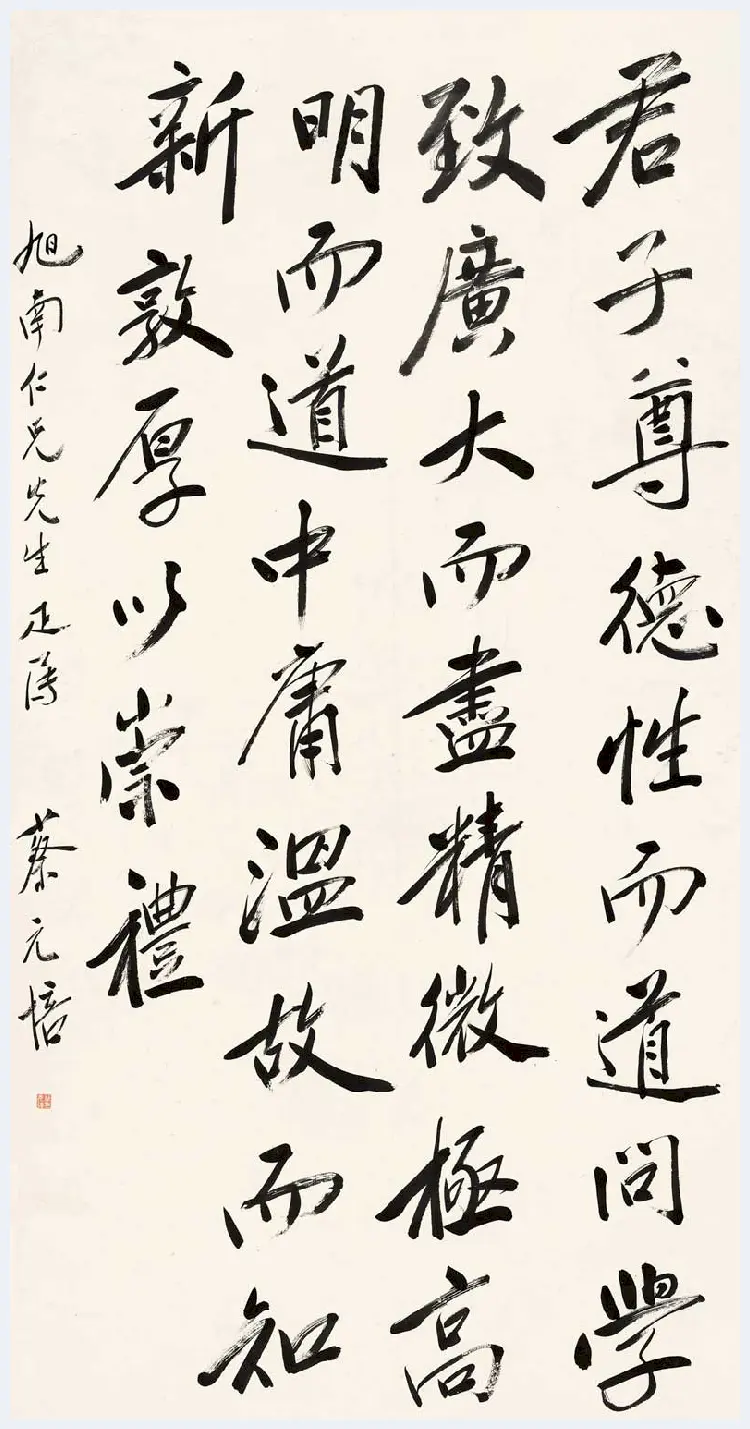 君子尊德性而道問學
致廣大而盡精微極高
明而道中庸溫故而知
新敦厚以崇禮
旭南仁兄先生正篆
蔡元培